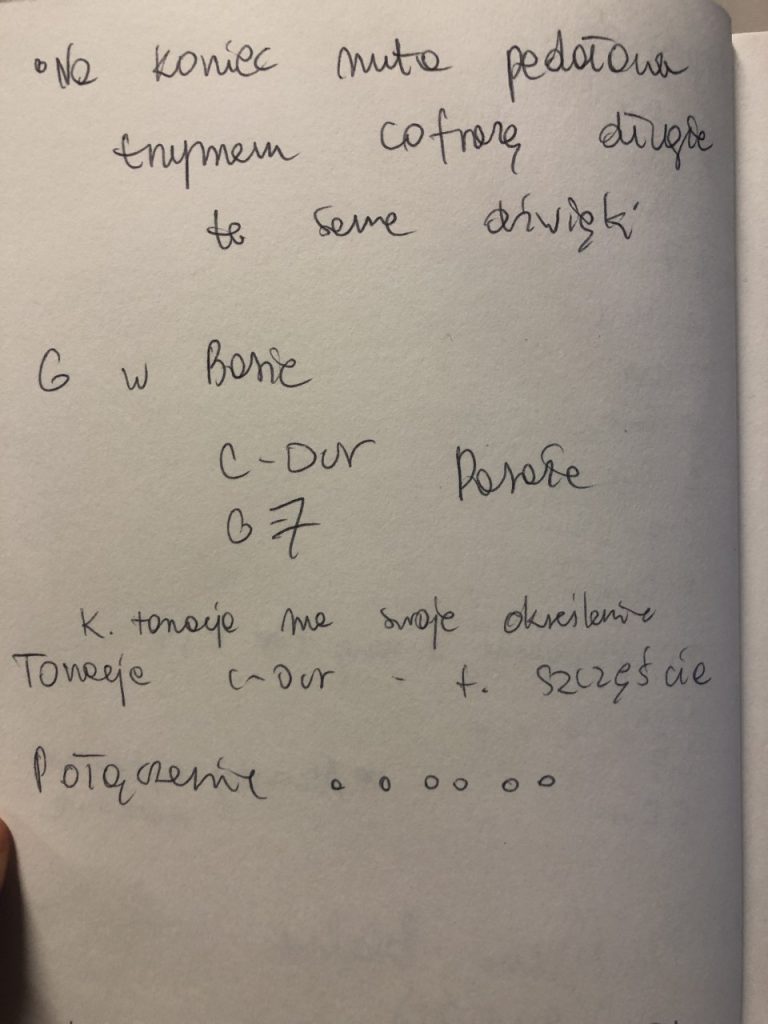 • Na koniec nuta pedałowa
trzymem długie
te same dźwięki
G w Basie
C-Dur
G 7
K. tonacja ma swoje określenie
Tonacje C-Dur - t. szczęście
Połączenie o o o o o o